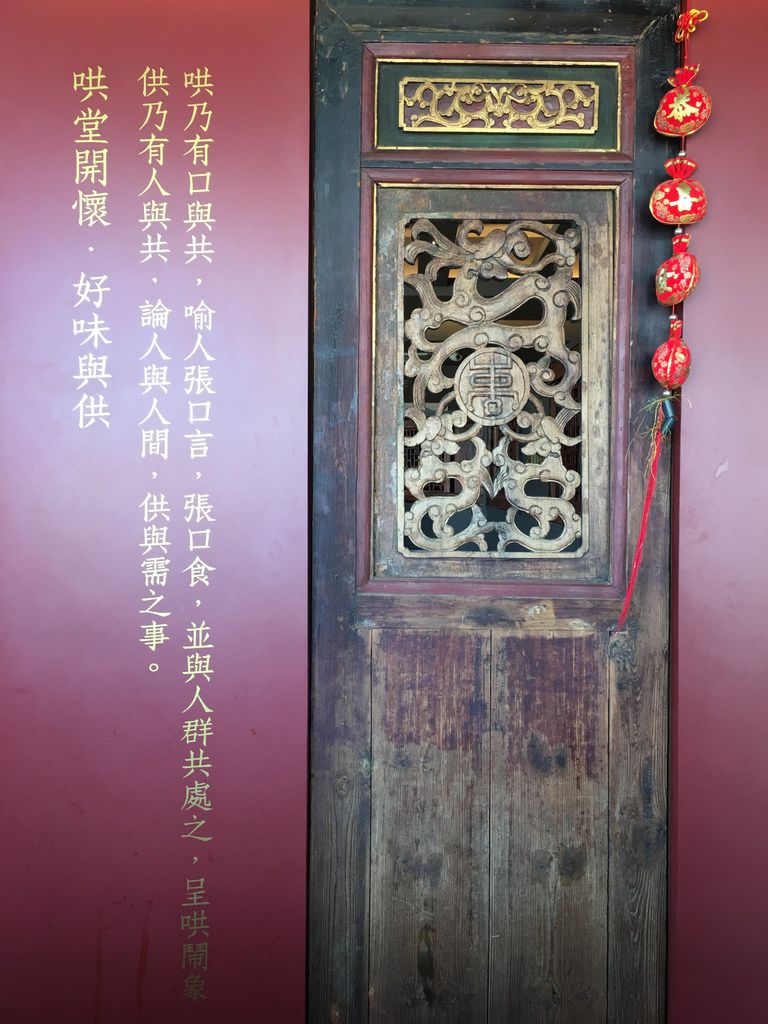 哄乃有口與共，喻人張口言，張口食，並與人群共處之，呈哄鬧象
供乃有人與共，論人與人間，供與需之事。
哄堂開懷．好味與供
恭